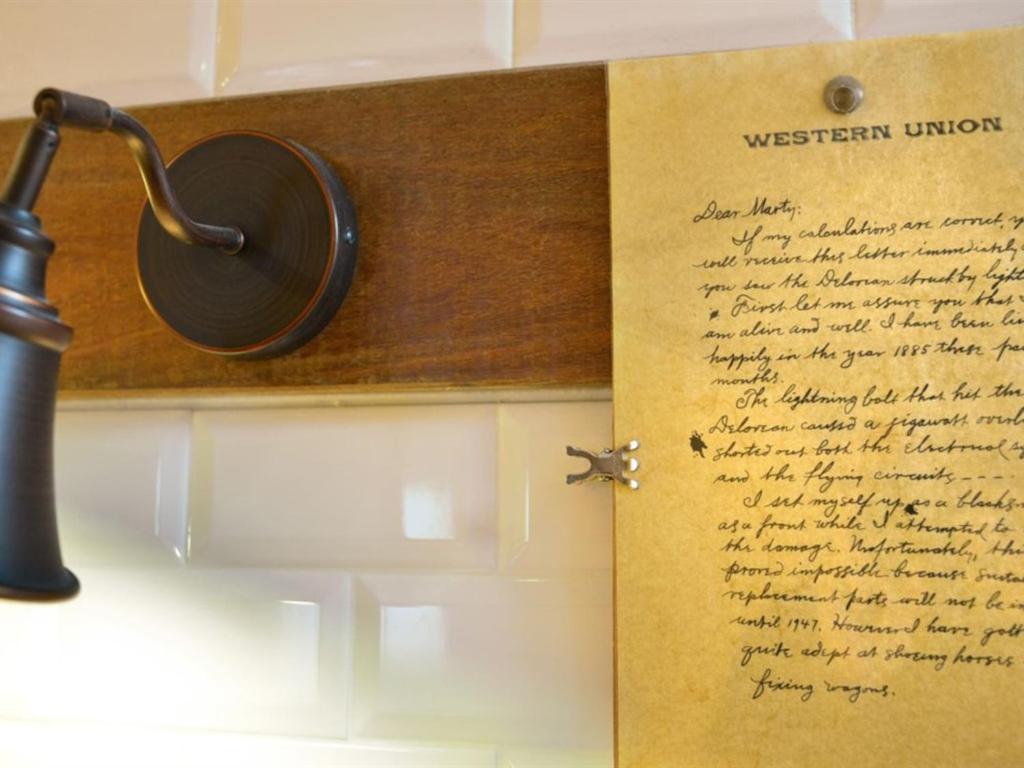 WESTERN UNION
Dear Marty:
If my calculations are correct,
will receive this letter immediately
you saw the Delorean struck by
First let me assure you that
am alive and well. I have been
happily in the year 1885 these
months.
The lightning bolt that hit the
Delorean caused a jigawatt
shorted out both the electrical
and the flying circuits ----
I set myself up as a
as a front while I attempted to
the damage. Unfortunately,
proved impossible because
replacement parts will not be
until 1947. However I have
quite adept at shoeing horses
fixing wagons.